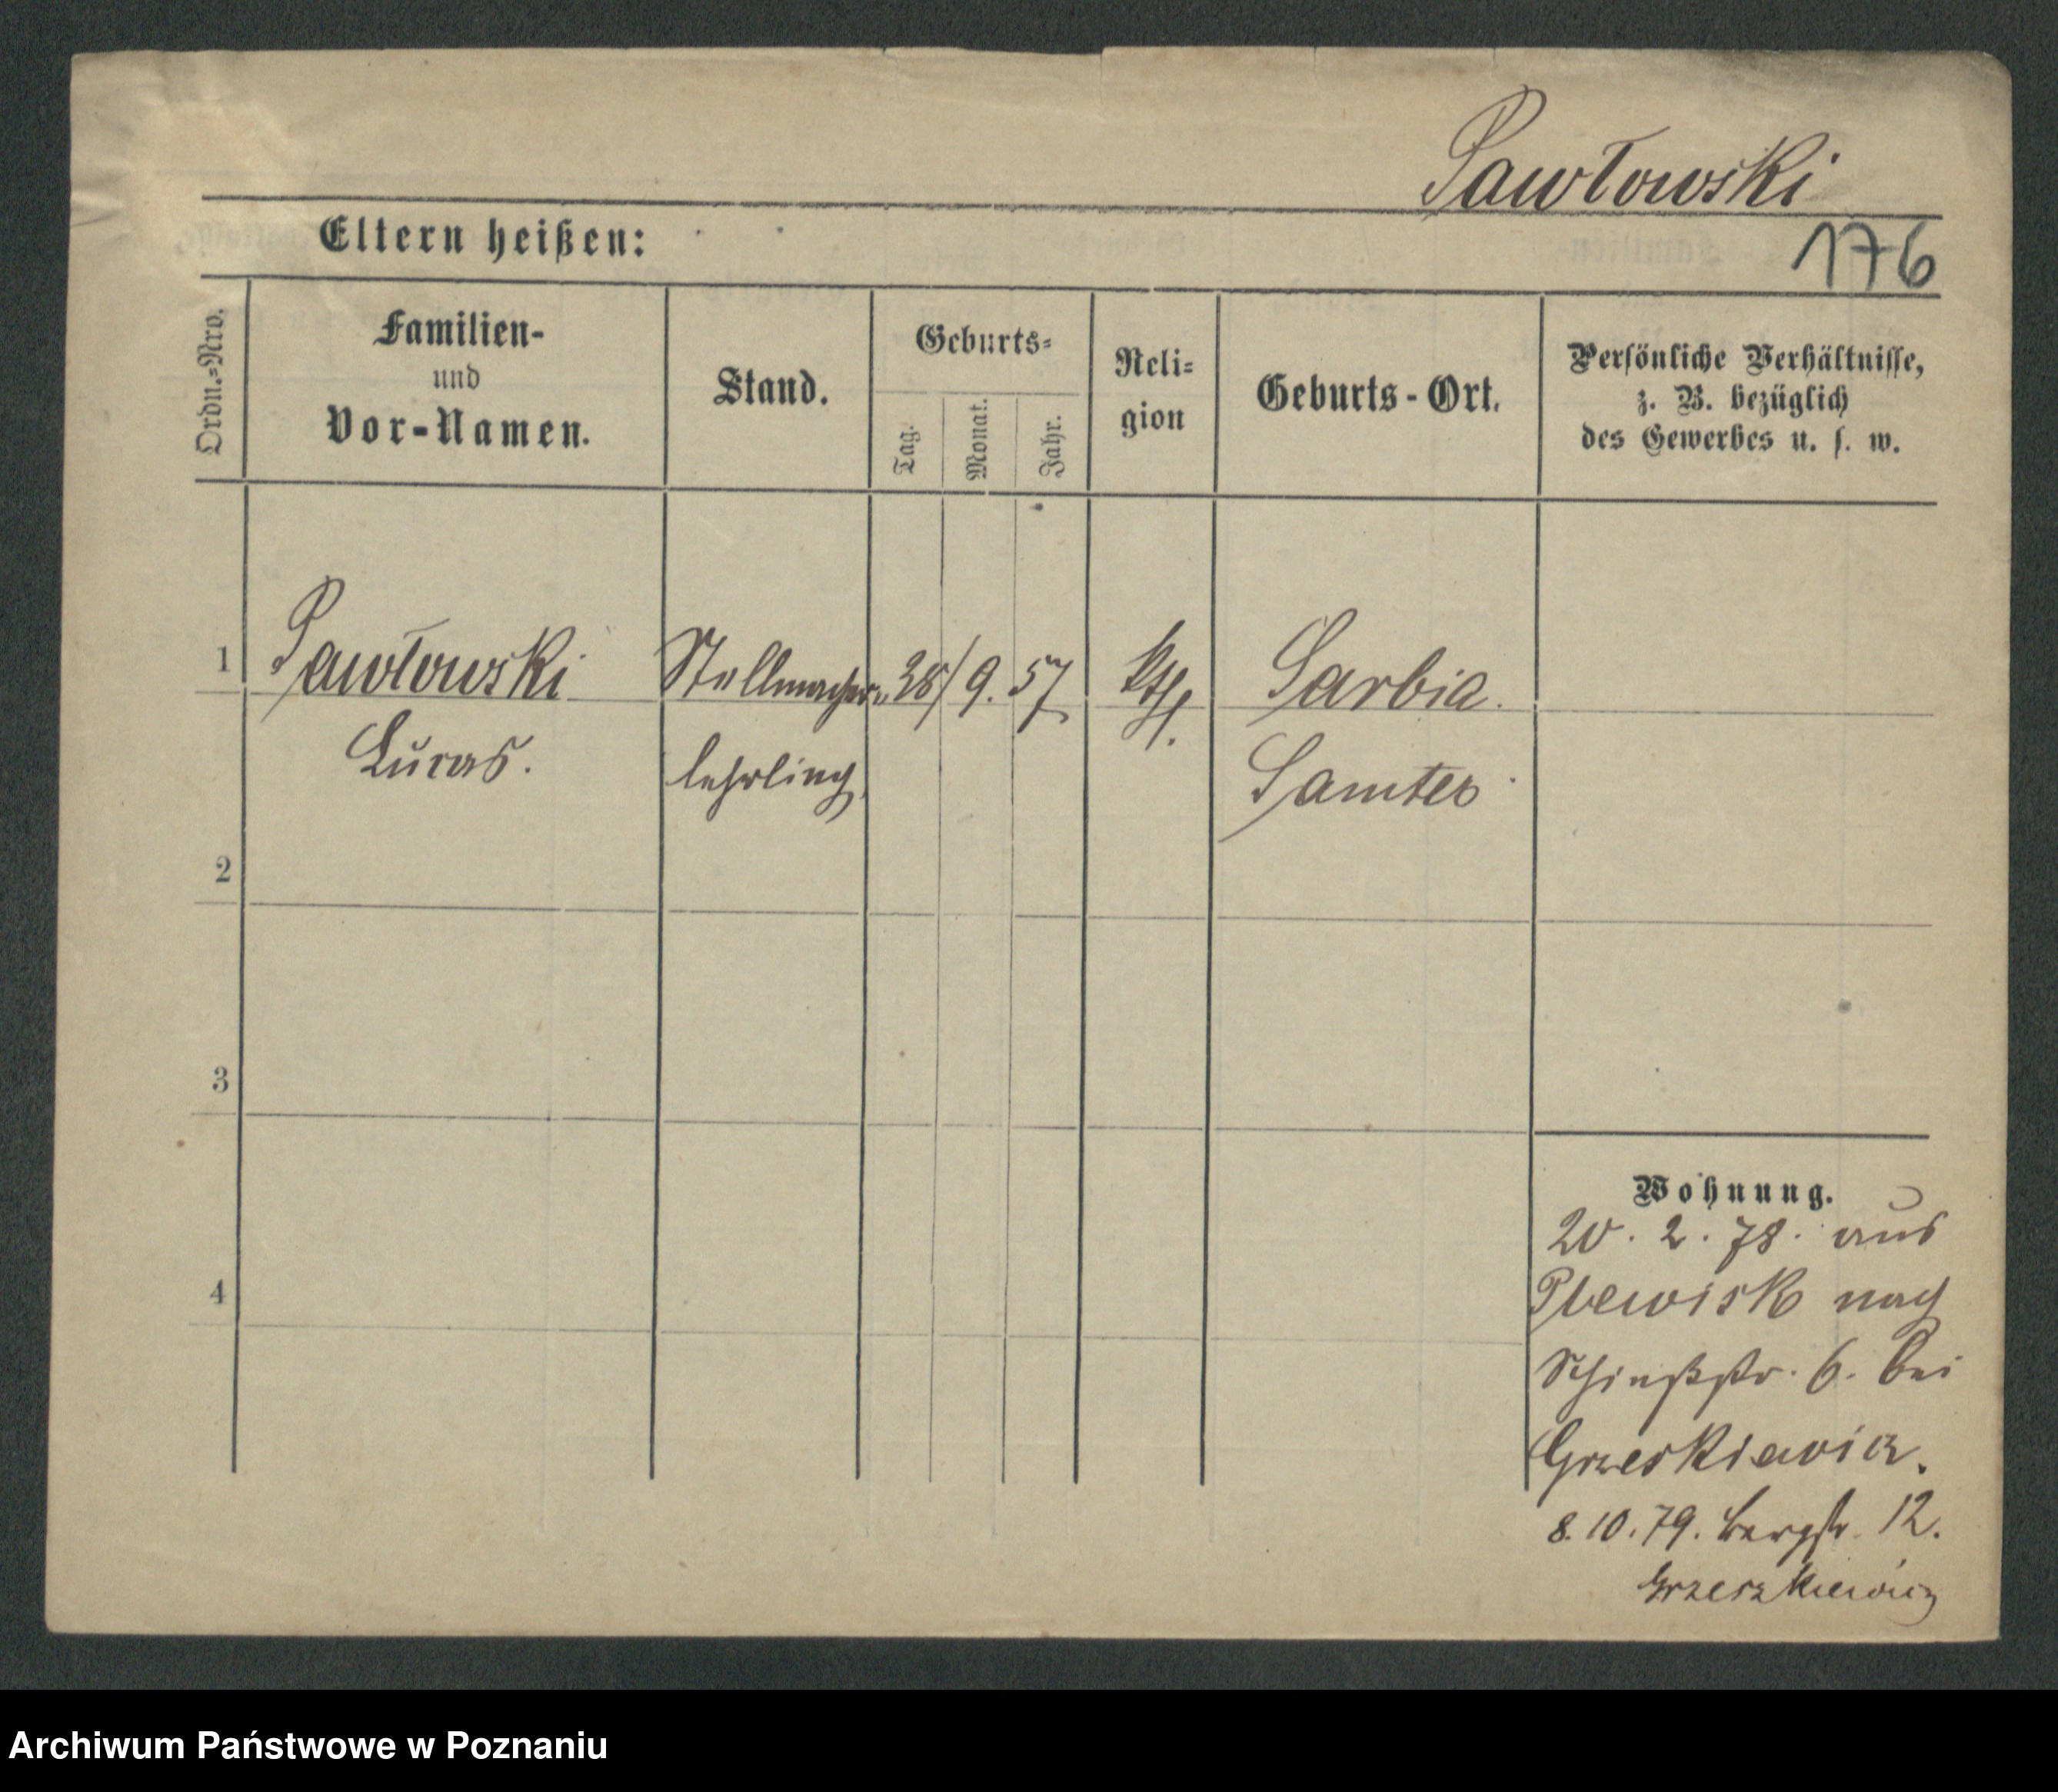 Pawłowski
176
Eltern heißen:
Ordn.=Nro.
Familien-
und
Vor-Namen.
Stand.
Geburts=
Tag.
Monat.
Jahr.
Reli=
gion
Geburts-Ort.
Persönliche Verhältnisse,
z. B. bezüglich
des Gewerbes u. s. w.
1 Pawłowski Stellmacher 28/9. 57 kth. Sarbia.
Lucas. lehrling Samter
2
3
4
Wohnung.
20. 2. 78. aus
Plewisk nach
Schießstr. 6. bei
Grzeskiewicz.
8.10.79. Bergstr. 12.
Grzeszkiewicz
Archiwum Państwowe w Poznaniu